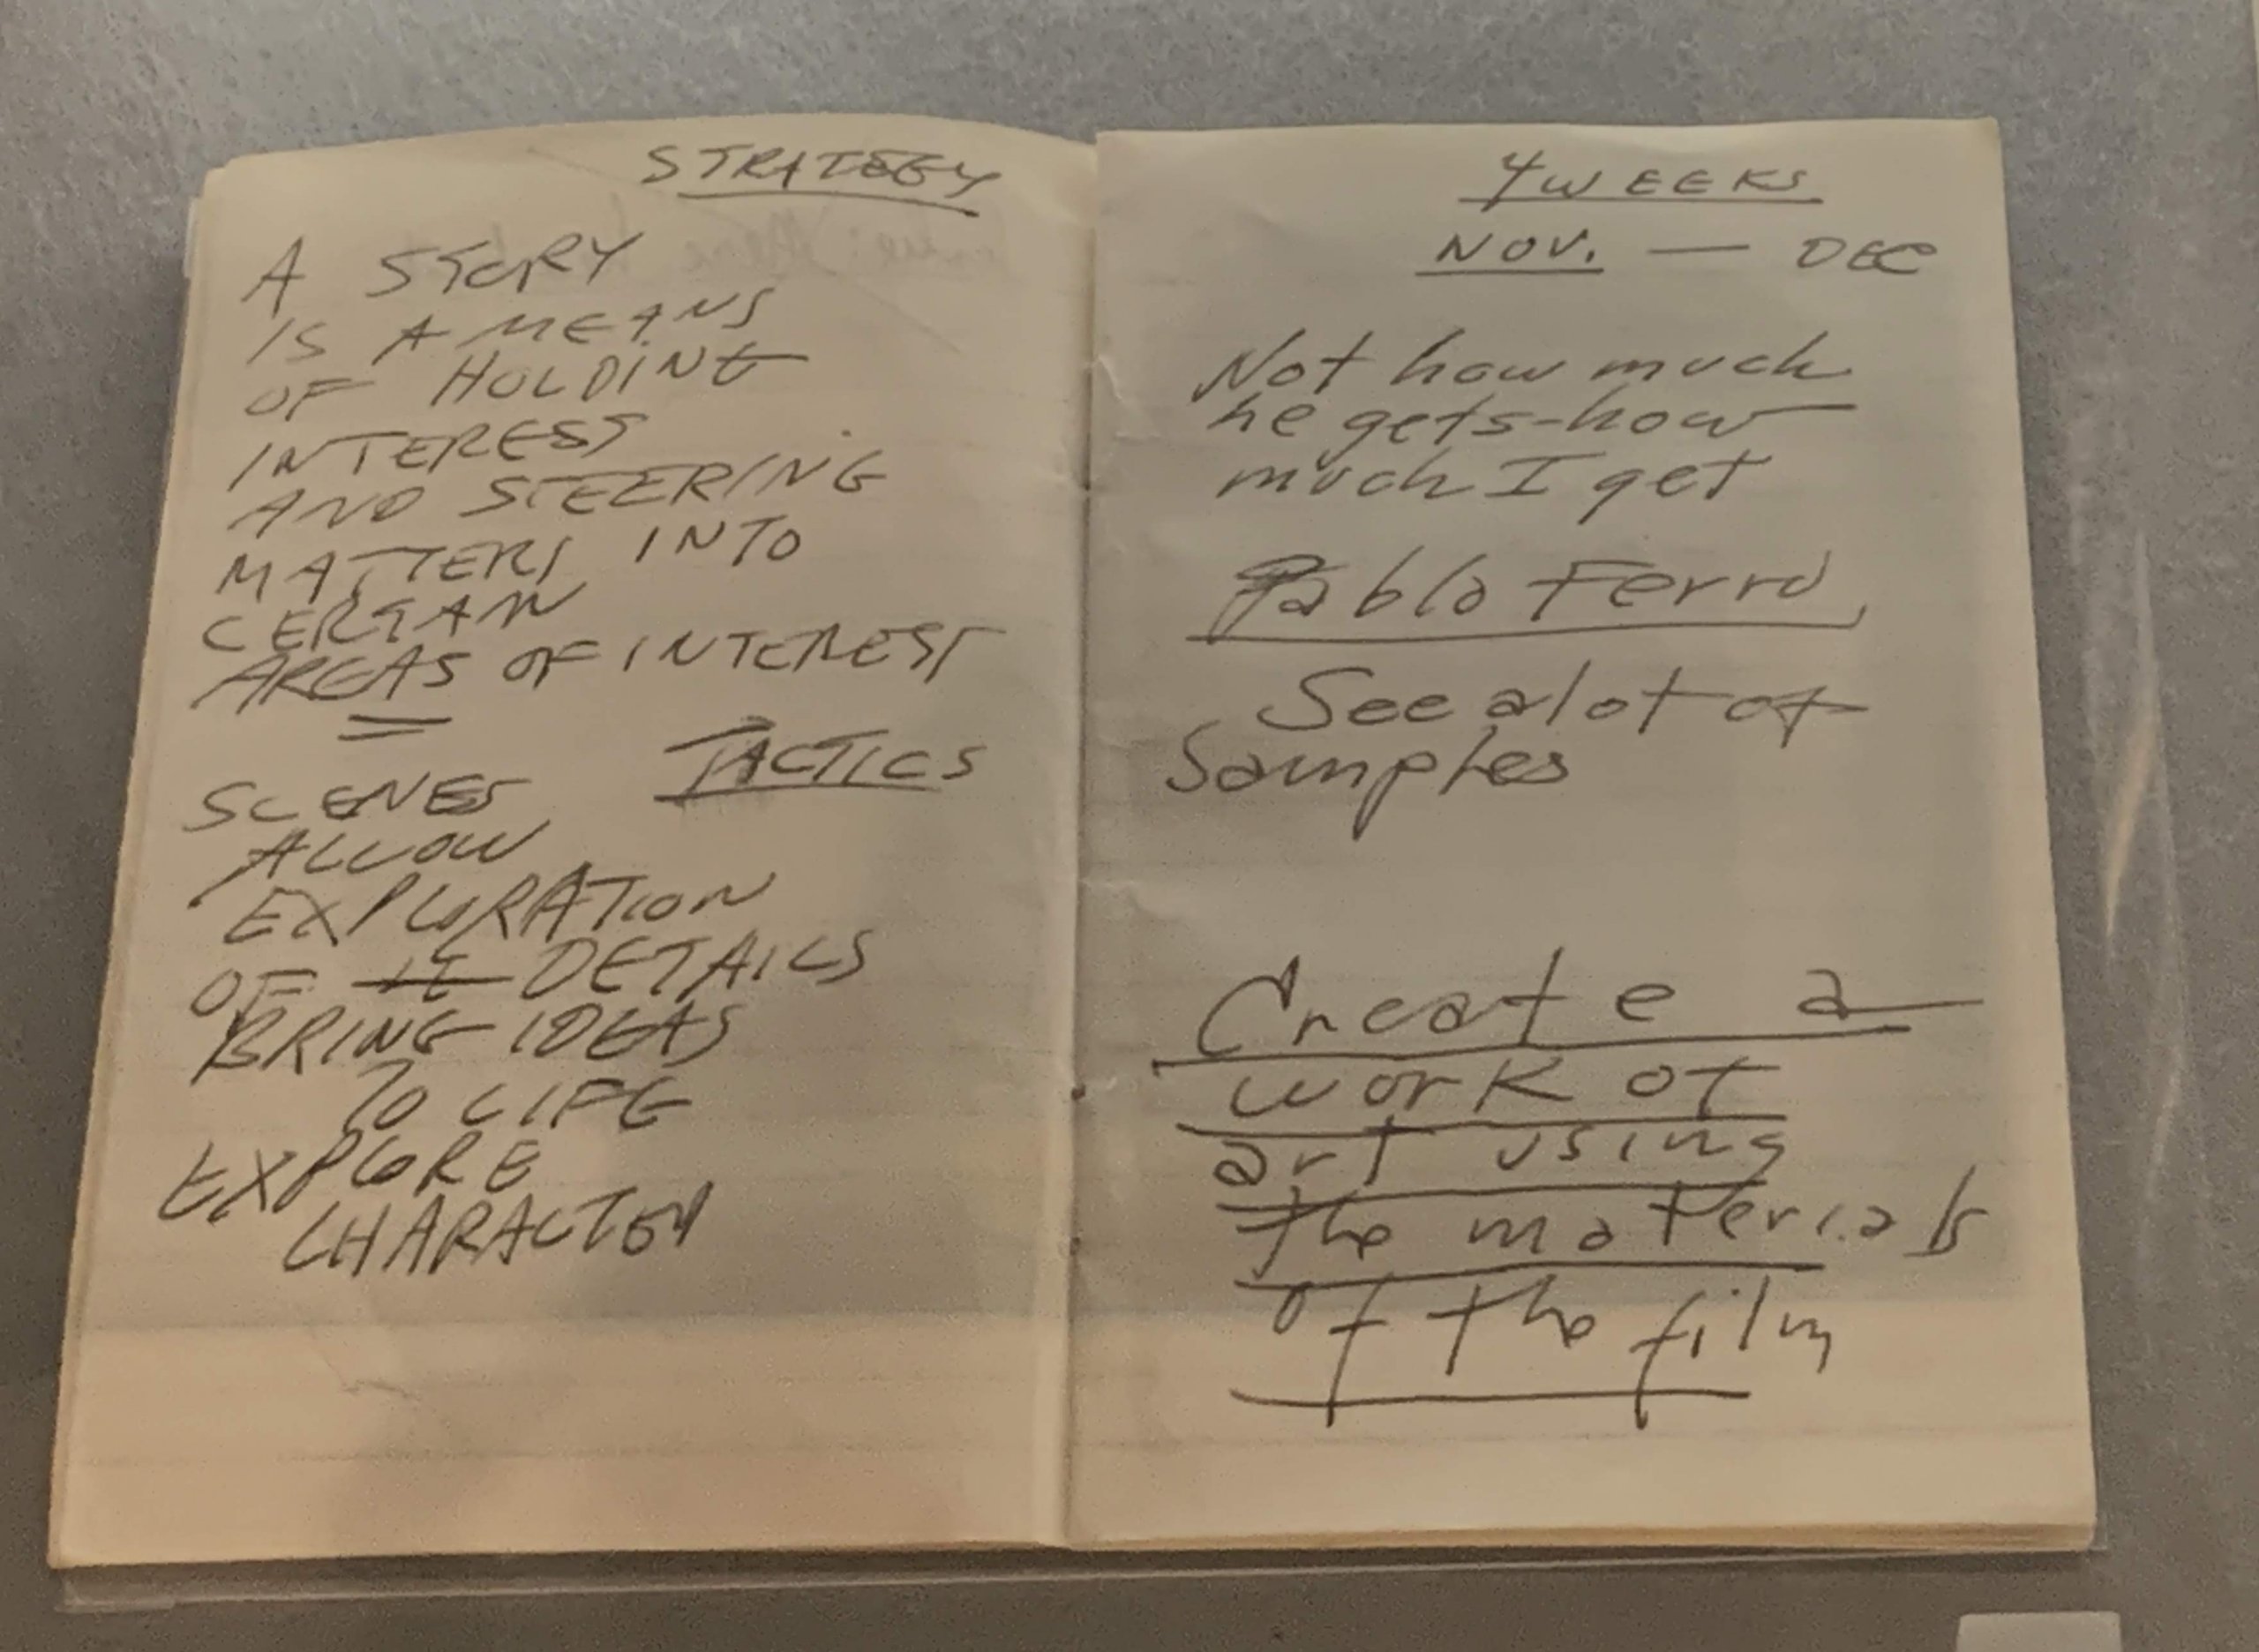 STRATEGY
A STORY
IS A MEANS
OF HOLDING
INTEREST
AND STEERING
MATTERS INTO
CERTAIN
AREAS OF INTEREST
TACTICS
SCENES
ALLOW
EXPLORATION
OF DETAILS
BRING IDEAS
TO LIFE
EXPLORE
CHARACTER
4 WEEKS
NOV. — DEC
Not how much
he gets-how
much I get
Pablo Ferro,
See a lot of
Samples
Create a
work of
art using
the materials
of the film